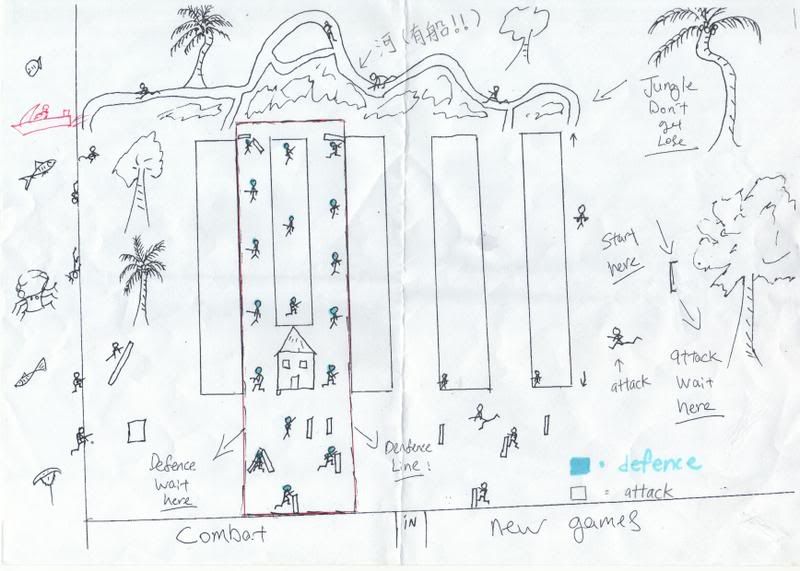 河(有船!!)
Jungle
Don't
get
Lose
Start
here
attack
attack
Wait
here
Defence
Wait
here
Denfence
Line:
= defence
= attack
Combat
IN
new games